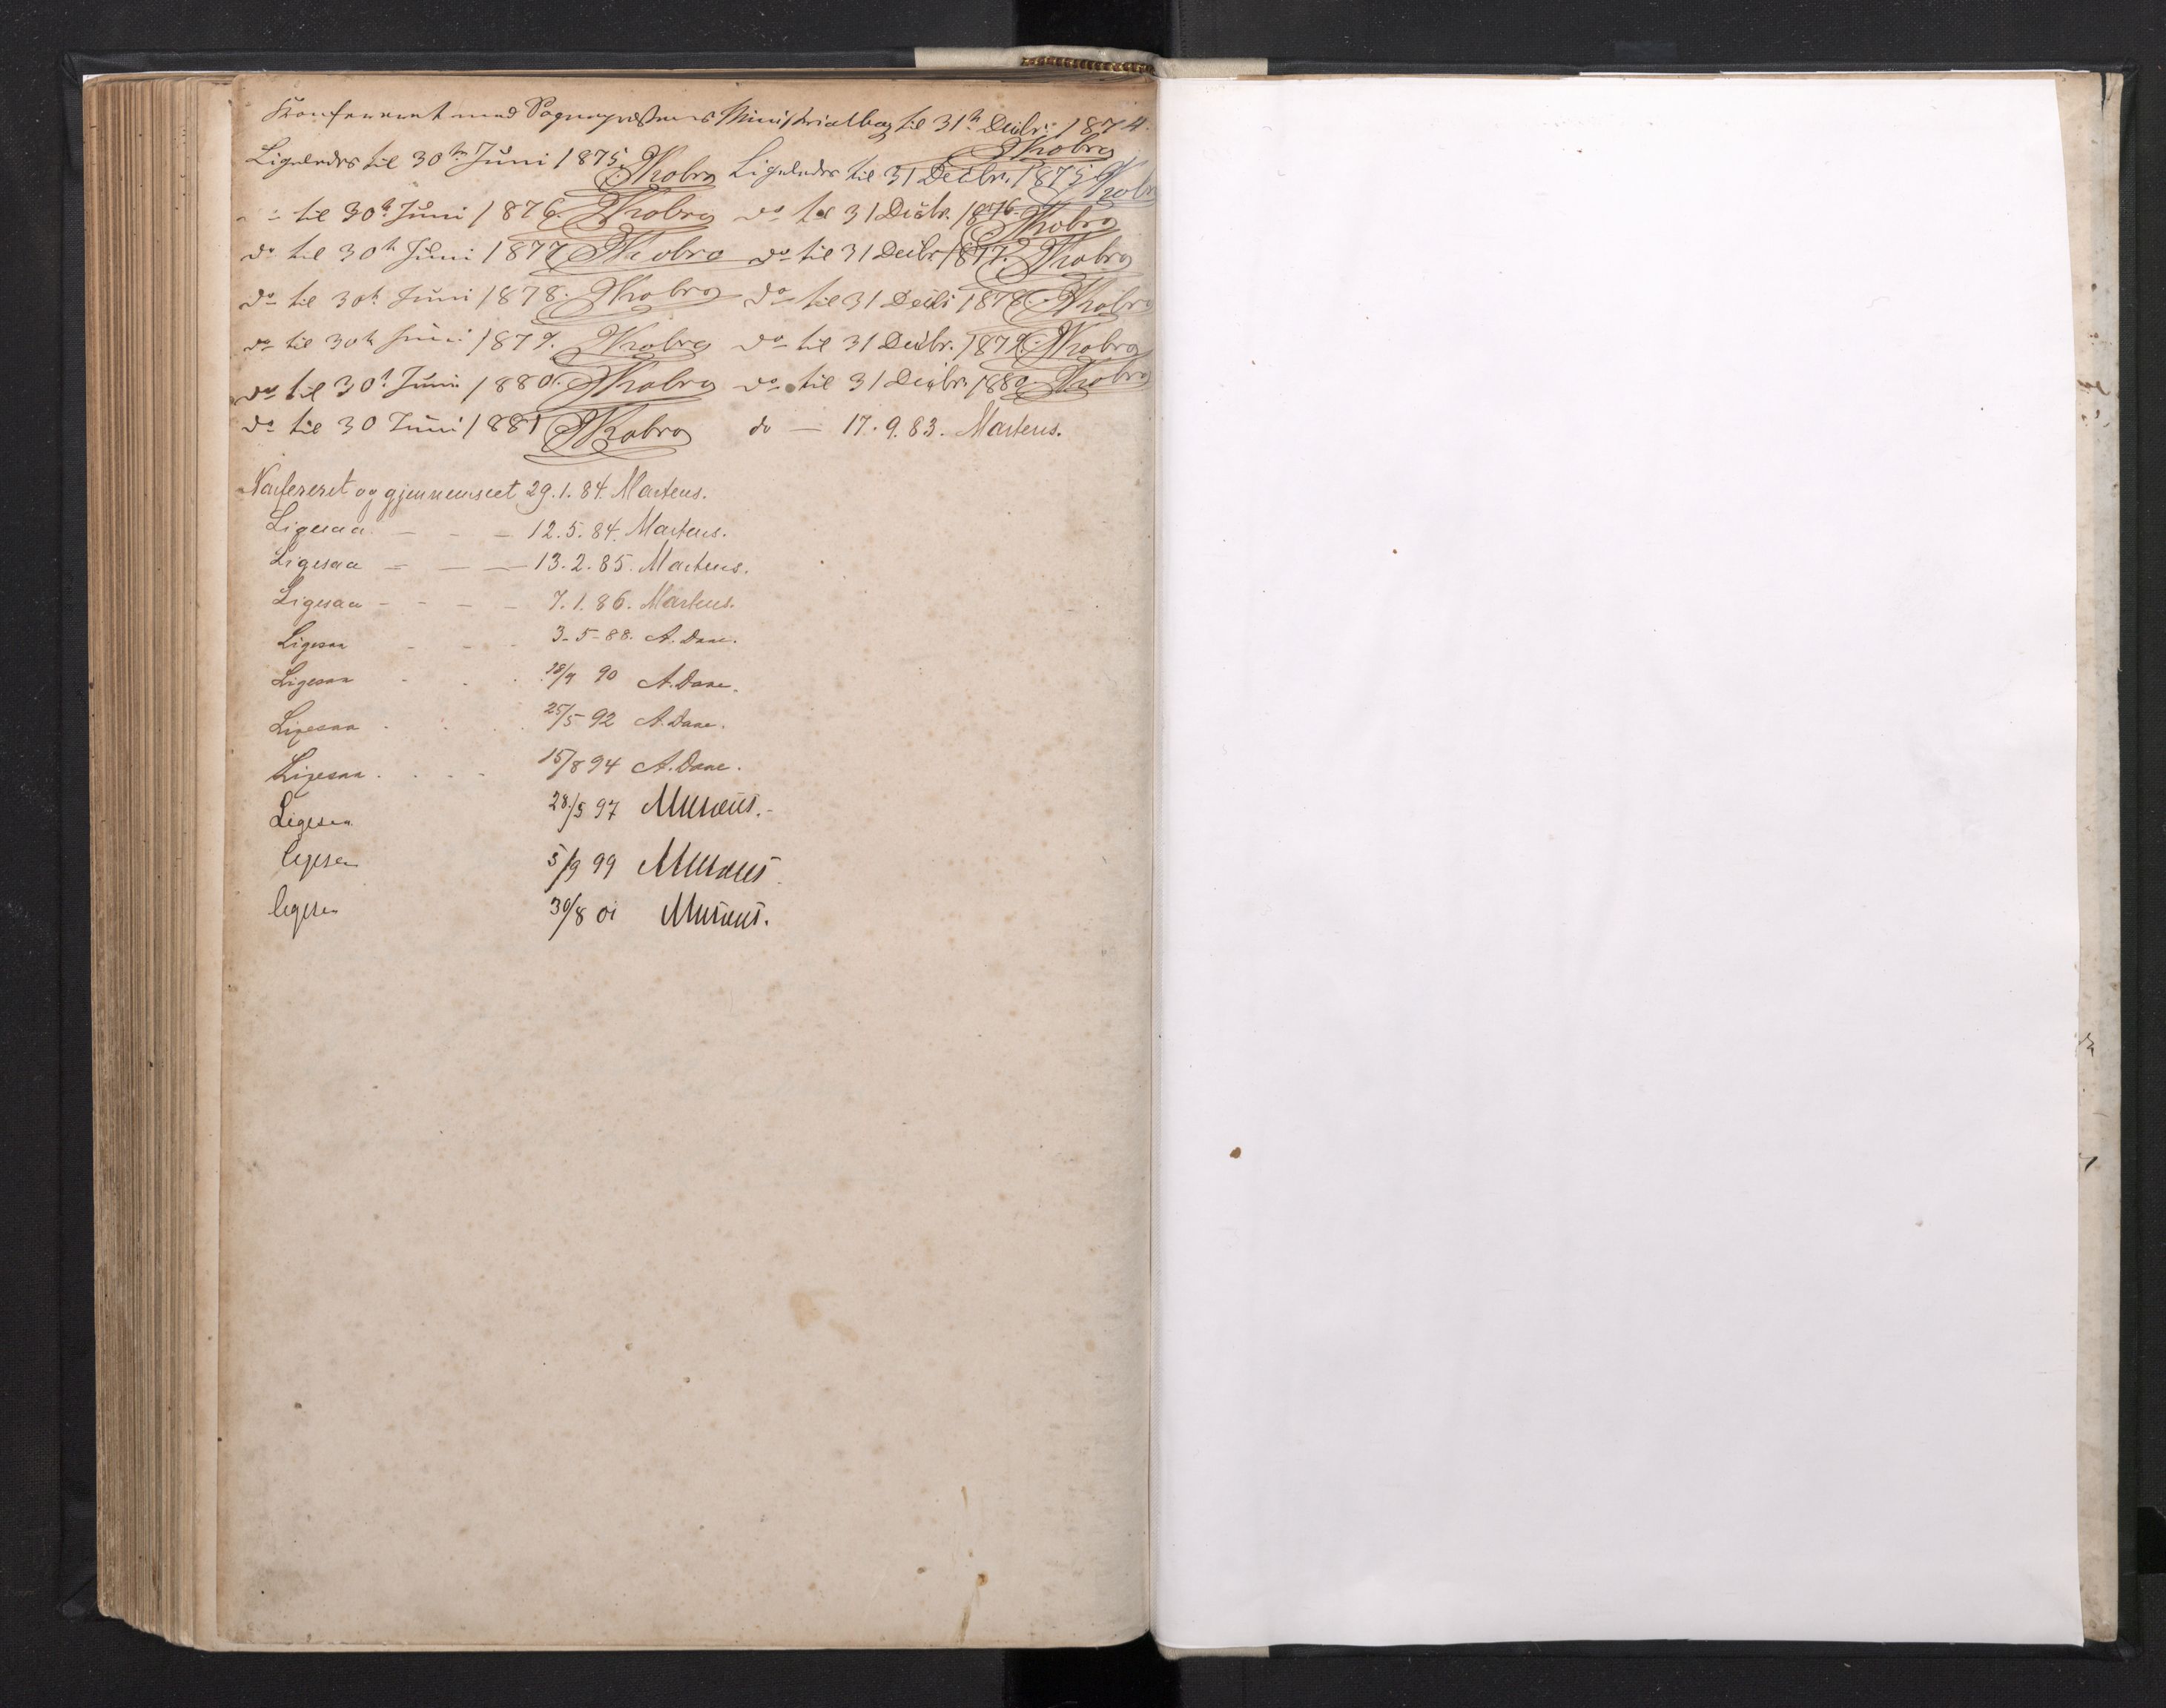 Konfereret med Sognepræstens Ministerialbog til 31te Decbr. 1874.
Krobro
Ligeledes til 30te Juni 1875. Krobro Ligeledes til 31 Decbr. 1875. Krobro
" " til 30te Juni 1876. Krobro do til 31 Decbr. 1876. Krobro
do til 30te Juni 1877 Krobro do til 31 Decbr 1877. Krobro
do til 30te Juni 1878. Krobro do til 31 Decbr 1878. Krobro
do til 30te Juni 1879. Krobro do til 31 Decbr. 1879. Krobro
do til 30te Juni 1880. Krobro do til 31 Decbr. 1880. Krobro
do til 30 Juni 1881 Krobro do — 17.9.83. Martens.
Konfereret og gjennemseet 29.1.84. Martens.
Ligesaa — - — 12.5.84. Martens.
Ligesaa — — — 13.2.85. Martens.
Ligesaa - - - - 7.1.86. Martens.
Ligesaa - - - 3-5-88. A. Daae.
Ligesaa - - - 18/9 90 A. Daae.
Ligesaa - - - 25/5 92 A. Daae.
Ligesaa - - - 15/8 94 A. Daae.
Ligesaa 28/5 97 Musæus.
ligesaa 5/9 99 Musæus
ligesaa 30/8 01 Musæus.